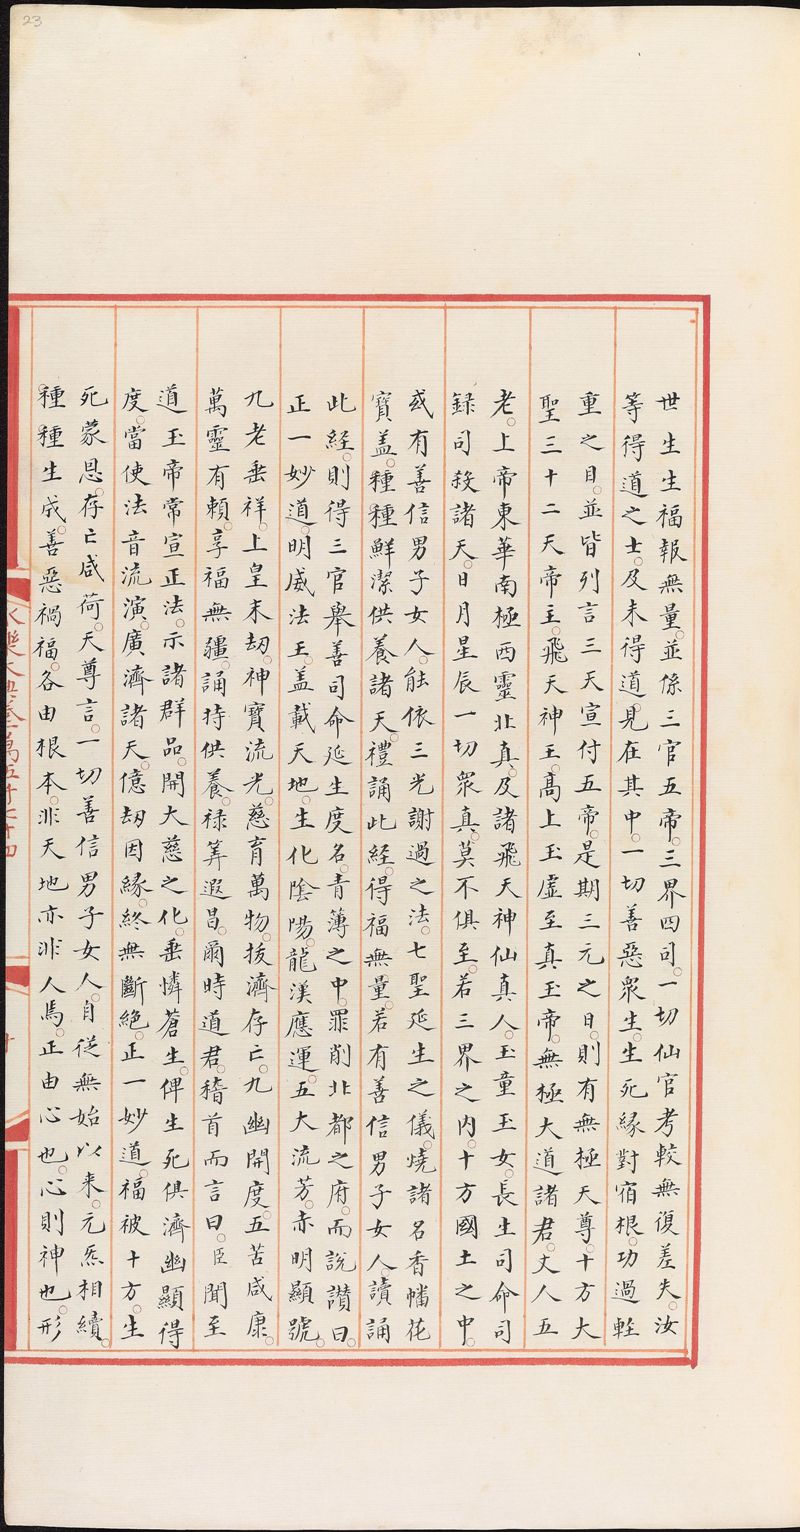 23
世生生福報無量。並係三官五帝。三界四司。一切仙官考較無復差失。汝
等得道之士。及未得道。見在其中。一切善惡衆生。生死緣對宿根。功過輕
重之目。並皆列言三天宣付五帝。是期三元之日。則有無極天尊。十方大
聖三十二天帝主。飛天神王。髙上玉虛至真玉帝。無極大道諸君。丈人五
老。上帝東華南極西靈北真。及諸飛天神仙真人。玉童玉女。長生司命司
録司殺諸天。日月星辰一切衆真。莫不俱至。若三界之内。十方國土之中。
或有善信男子女人。能依三光謝過之法。七聖延生之儀。燒諸名香幡花
寶盖。種種鮮潔供養諸天。禮誦此經。得福無量。若有善信男子女人讀誦
此經。則得三官舉善司命延生度名。青薄之中。罪削北都之府。而說讃曰。
正一妙道。明威法王。盖載天地。生化陰陽。龍漢應運。五大流芳。赤明顯號。
九老垂祥。上皇末刼。神寶流光。慈育萬物。拔濟存亡。九幽開度。五苦咸康。
萬靈有賴。享福無疆。誦持供養。禄筭遐昌。爾時道君。稽首而言曰。臣聞至
道玉帝常宣正法。示諸群品。開大慈之化。垂憐蒼生。俾生死俱濟幽顯得
度。當使法音流演。廣濟諸天。億刼因緣。終無斷絕。正一妙道。福被十方。生
死蒙恩。存亡咸荷。天尊言。一切善信男子女人。自從無始以来。元炁相續。
種種生成。善惡禍福。各由根本。非天地亦非人焉。正由心也。心則神也。形